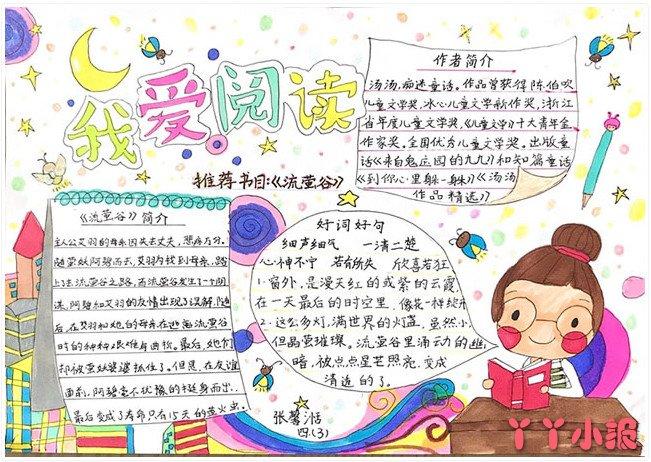 我爱阅读
推荐书目:《流萤谷》
作者简介
汤汤,痴迷童话。作品曾获得陈伯吹
儿童文学奖,冰心儿童文学新作奖,浙江
省年度儿童文学奖,《儿童文学》十大青年金
作家奖。全国优秀儿童文学奖。出版童
话《来自鬼庄园的九九》和短篇童话
《到你心里躲一躲》《汤汤
作品精选》
《流萤谷》简介
主人公艾羽的母亲因失去丈夫,悲痛万分。
随萤妖阿碧而去,艾羽为找到母亲,踏
上了去流萤谷之路,
谋,阿碧和艾羽的友情出现了误解,随
后,在艾羽和她的母亲在逃离流萤谷
时的种种艰难与曲折。最后,她们
却被萤妖婆婆抓住了。但是,在友谊
面前,阿碧毫不犹豫的挺身而出,
最后变成了寿命只有15天的萤火虫。
好词好句
细声细气 一清二楚
心神不宁 若有所失 欣喜若狂
1.窗外,是漫天红的或紫的云霞,
在一天最后的时空里,像花一样绽开
2.这么多灯,满世界的灯盏,虽然小,
但晶莹璀璨。流萤谷里涌动的幽
暗,被点点星芒照亮,变成
清浅的了。
张馨
四.(3)
丫丫小报